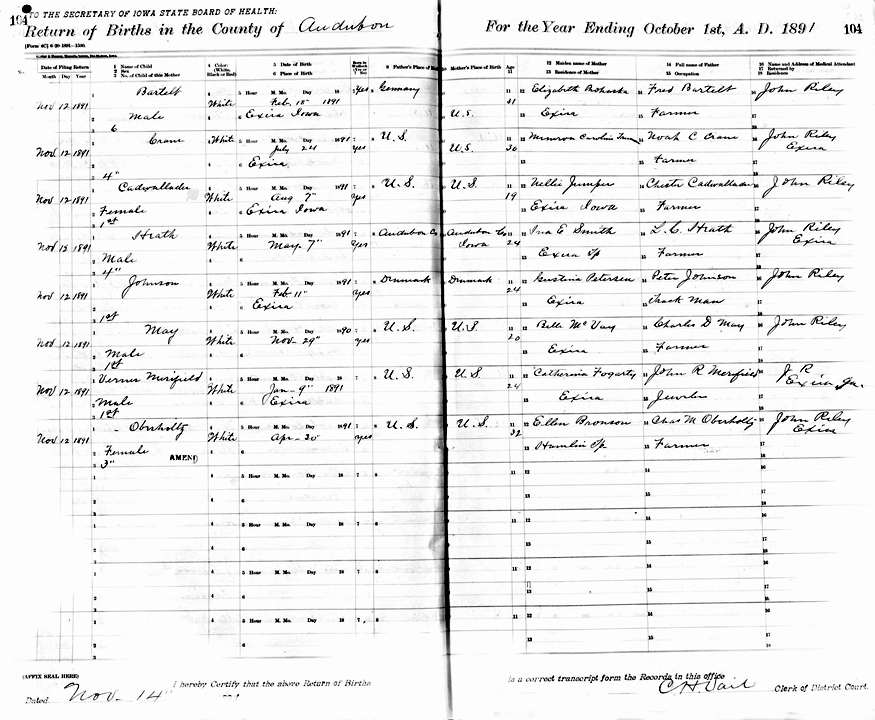 104 TO THE SECRETARY OF IOWA STATE BOARD OF HEALTH:
Return of Births in the County of Audubon For the Year Ending October 1st, A. D. 1891 104
Date of Filing Return 1 Name of Child 4 Color: 5 Date of Birth 8 Father's Place of Birth Mother's Place of Birth Age 12 Maiden name of Mother 14 Full name of Father 16 Name and Address of Medical Attendant
Month Day Year 2 Sex (White, 6 Place of Birth 11 13 Residence of Mother 15 Occupation 17 Returned by
3 No. of Child of this Mother Black or Red) 18 Residence
Bartelt Yes Germany Fred Bartelt John Riley
Nov 12 1891 White Feb. 18" 1891 31
Male Exira Iowa U.S. Exira Farmer
6
Crane White 1891 U.S. Noah C Crane John Riley
Nov. 12 1891 July 24 Yes U.S. 30 Exira
Exira Farmer
4"
Cadwallader 1891 U.S. U.S. Nellie Jumper Chester Cadwallader John Riley
Nov. 12 1891 White Aug 7" Yes 19
Female Exira Iowa Exira Iowa Farmer
1st
Heath 1891 Audubon Co Audubon Co Ina E Smith L. C. Heath John Riley
Nov 12 1891 White May 7" Yes Iowa 24 Exira
Male Exira Tp Farmer
4"
Johnson 1891 Denmark Denmark Gustina Petersen Peter Johnson John Riley
Nov 12 1891 White Feb 11" Yes 24
Exira Exira Track Man
1st
May 1890 U.S. U.S. Belle McVay Charles D May John Riley
Nov. 12 1891 White Nov. 29" Yes 20
Male Exira Farmer
1st
Verner Merifield U.S. U.S. Catherina Fogarty John R Merifield J R
Nov 12 1891 White Jan - 9" 1891 24 Exira Ia.
Male Exira Exira Jeweler
1st
- Oberholtz 1891 U.S. U.S. Ellen Bronson Chas M Oberholtz John Riley
Nov 12 1891 White Apr - 30 Yes 32 Exira
Female Hamlin Tp Farmer
3" AMEND
(AFFIX SEAL HERE) I hereby Certify that the above Return of Births is a correct transcript form the Records in this office
Dated Nov - 14" C. H. Vail Clerk of District Court.